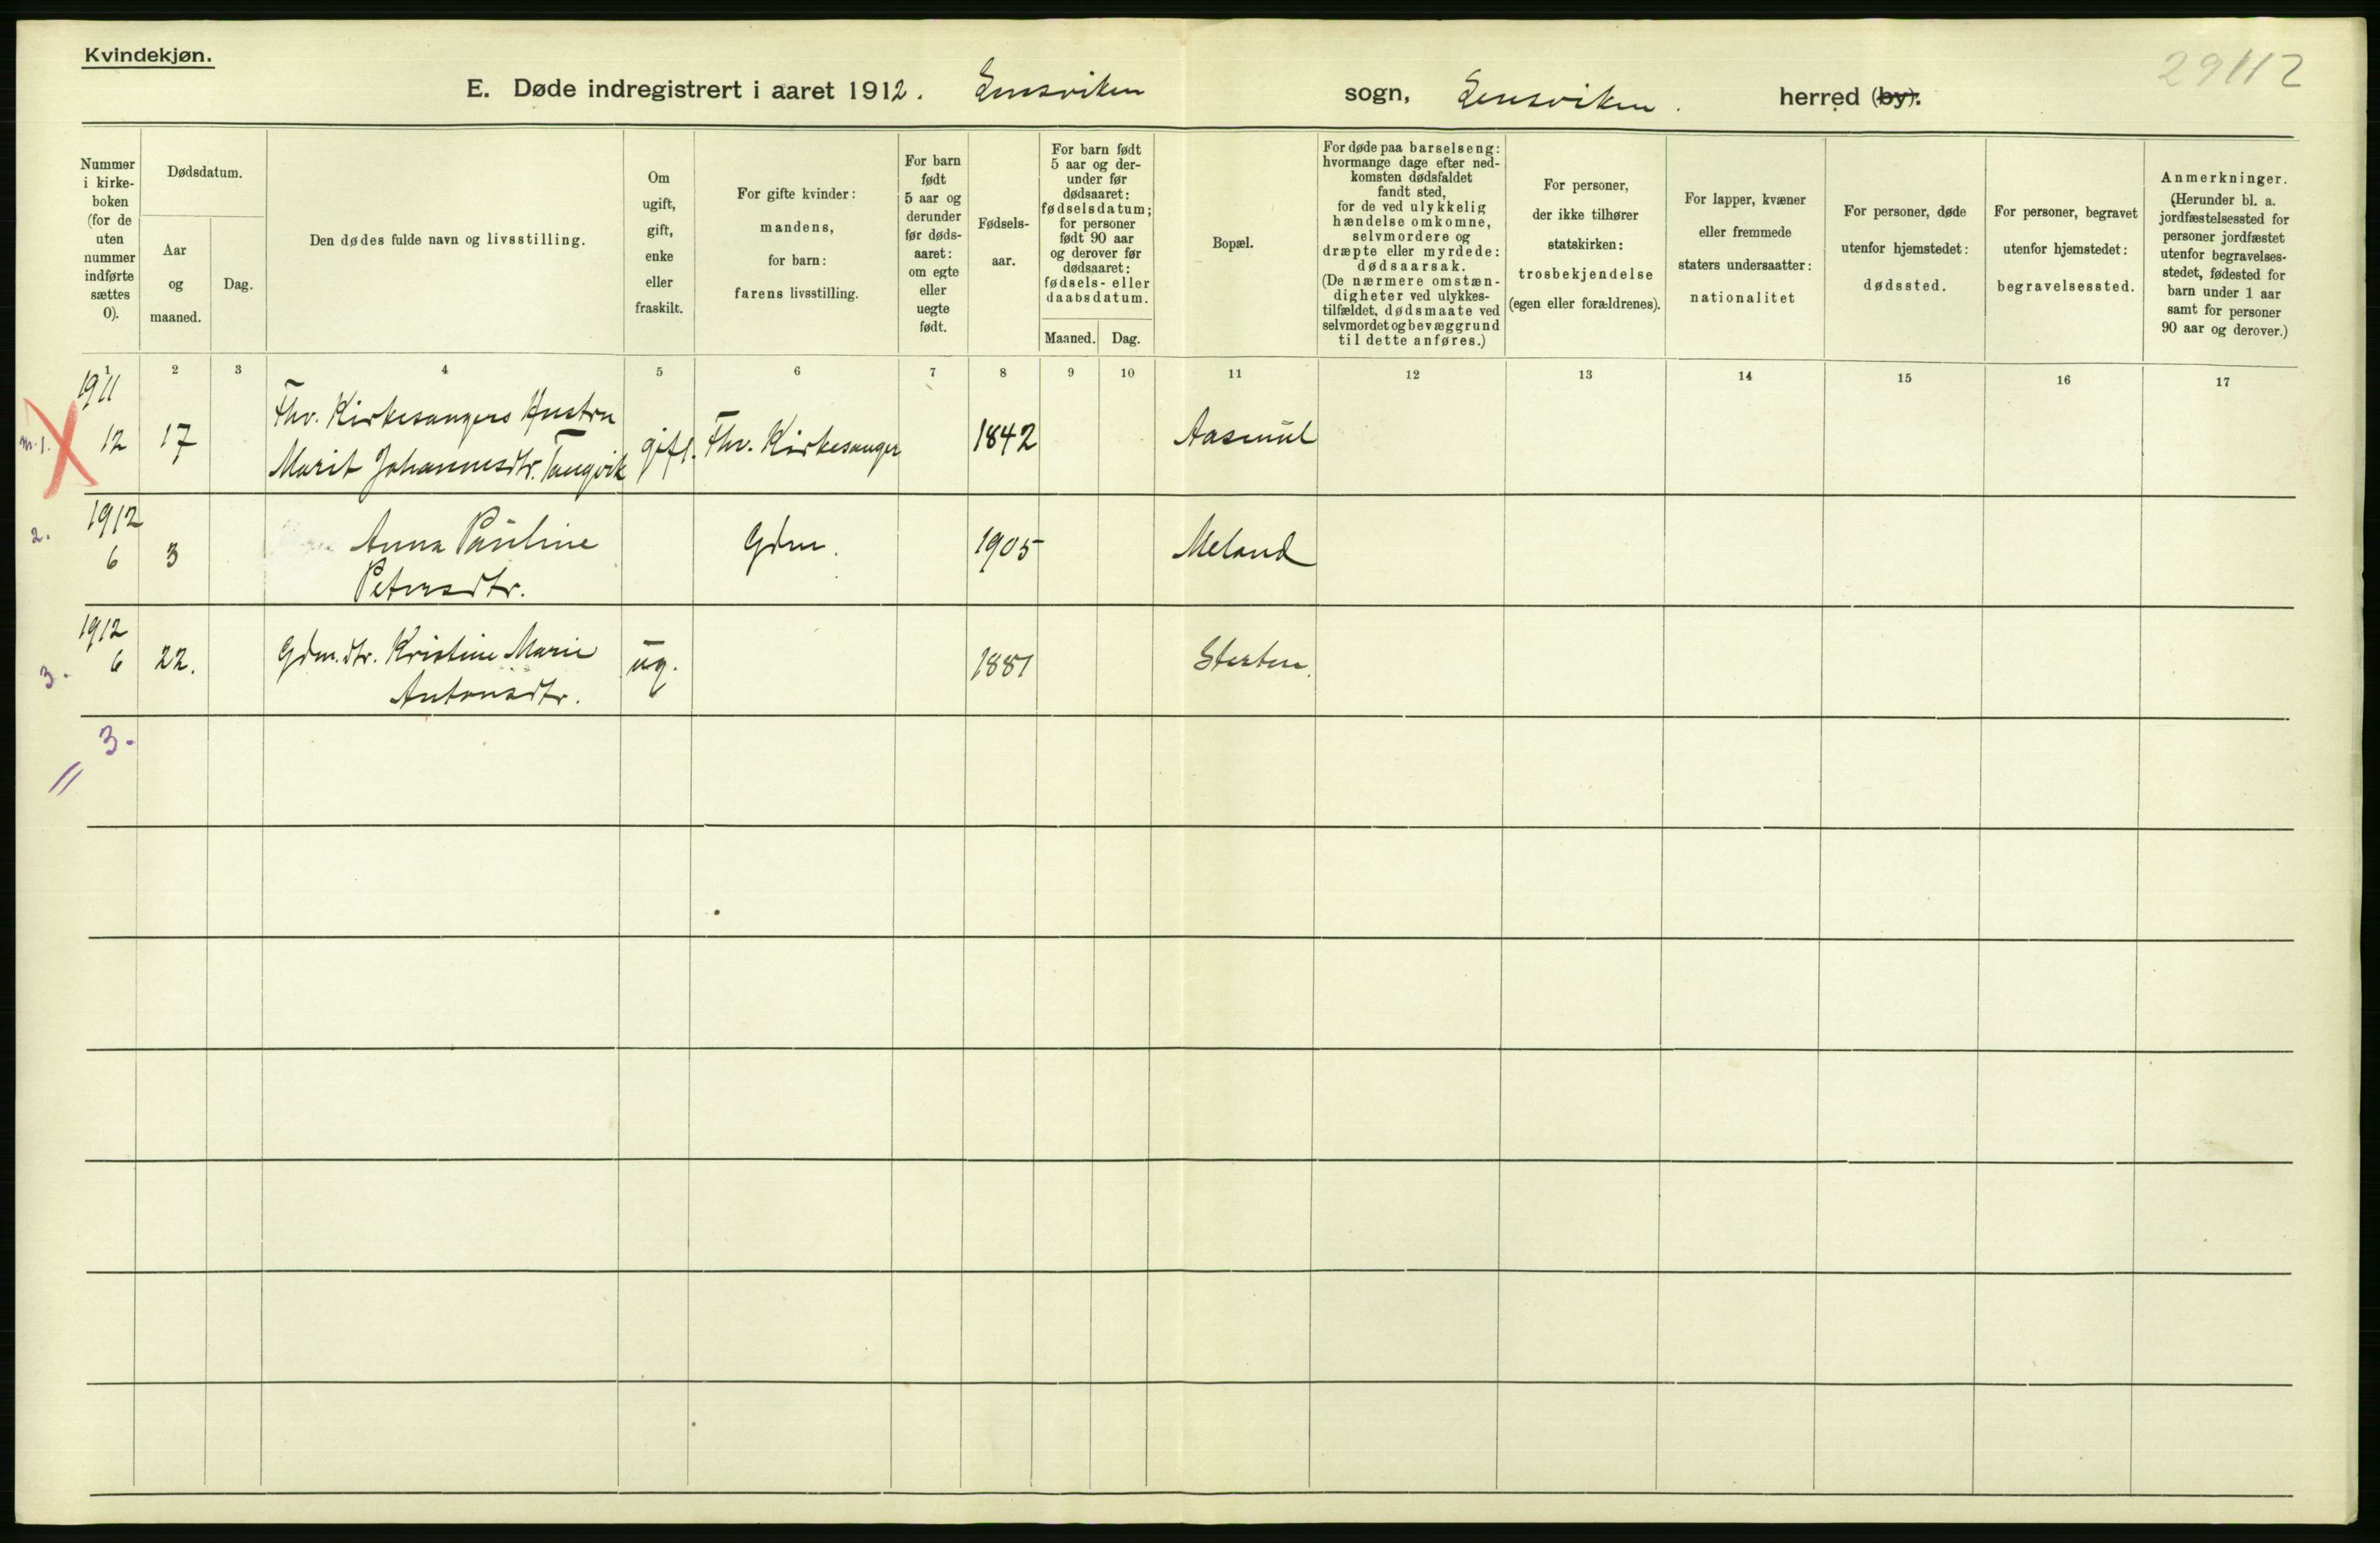 Kvindekjøn.
29112
E. Døde indregistrert i aaret 1912. Lensviken sogn, Lensviken. herred (by).
Nummer i kirke-boken (for de uten nummer indførte sættes 0).
Dødsdatum.
Aar og maaned.
Dag.
Den dødes fulde navn og livsstilling.
Om ugift, gift, enke eller fraskilt.
For gifte kvinder: mandens, for barn: farens livsstilling.
For barn født 5 aar og derunder før døds-aaret: om egte eller uegte født.
Fødsels-aar.
For barn født 5 aar og der-under før dødsaaret: fødselsdatum; for personer født 90 aar og derover før dødsaaret: fødsels- eller daabsdatum.
Maaned.
Dag.
Bopæl.
For døde paa barselseng: hvormange dage efter ned-komsten dødsfaldet fandt sted, for de ved ulykkelig hændelse omkomne, selvmordere og dræpte eller myrdede: dødsaarsak. (De nærmere omstæn-digheter ved ulykkes-tilfældet, dødsmaate ved selvmordet og bevæggrund til dette anføres.)
For personer, der ikke tilhører statskirken: trosbekjendelse (egen eller forældrenes).
For lapper, kvæner eller fremmede staters undersaatter: nationalitet
For personer, døde utenfor hjemstedet: dødssted.
For personer, begravet utenfor hjemstedet: begravelsessted.
Anmerkninger. (Herunder bl. a. jordfæstelsessted for personer jordfæstet utenfor begravelses-stedet, fødested for barn under 1 aar samt for personer 90 aar og derover.)
1 2 3 4 5 6 7 8 9 10 11 12 13 14 15 16 17
1911
Fhv. Kirkesangers Hustru
m. 1. X 12 17 Marit Johannesdtr. Tangvik gift. Fhv. Kirkesanger 1842 Aasmul
1912
2. 6 3 Anna Pauline Gdm. 1905 Meland
Petersdtr.
1912
3. 6 22. Gdm.dtr. Kristine Marie ug. 1881 Sterten.
Antonsdtr.
3.